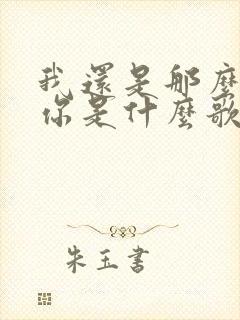 我還是那麼
你是什麼歌
朱玉書